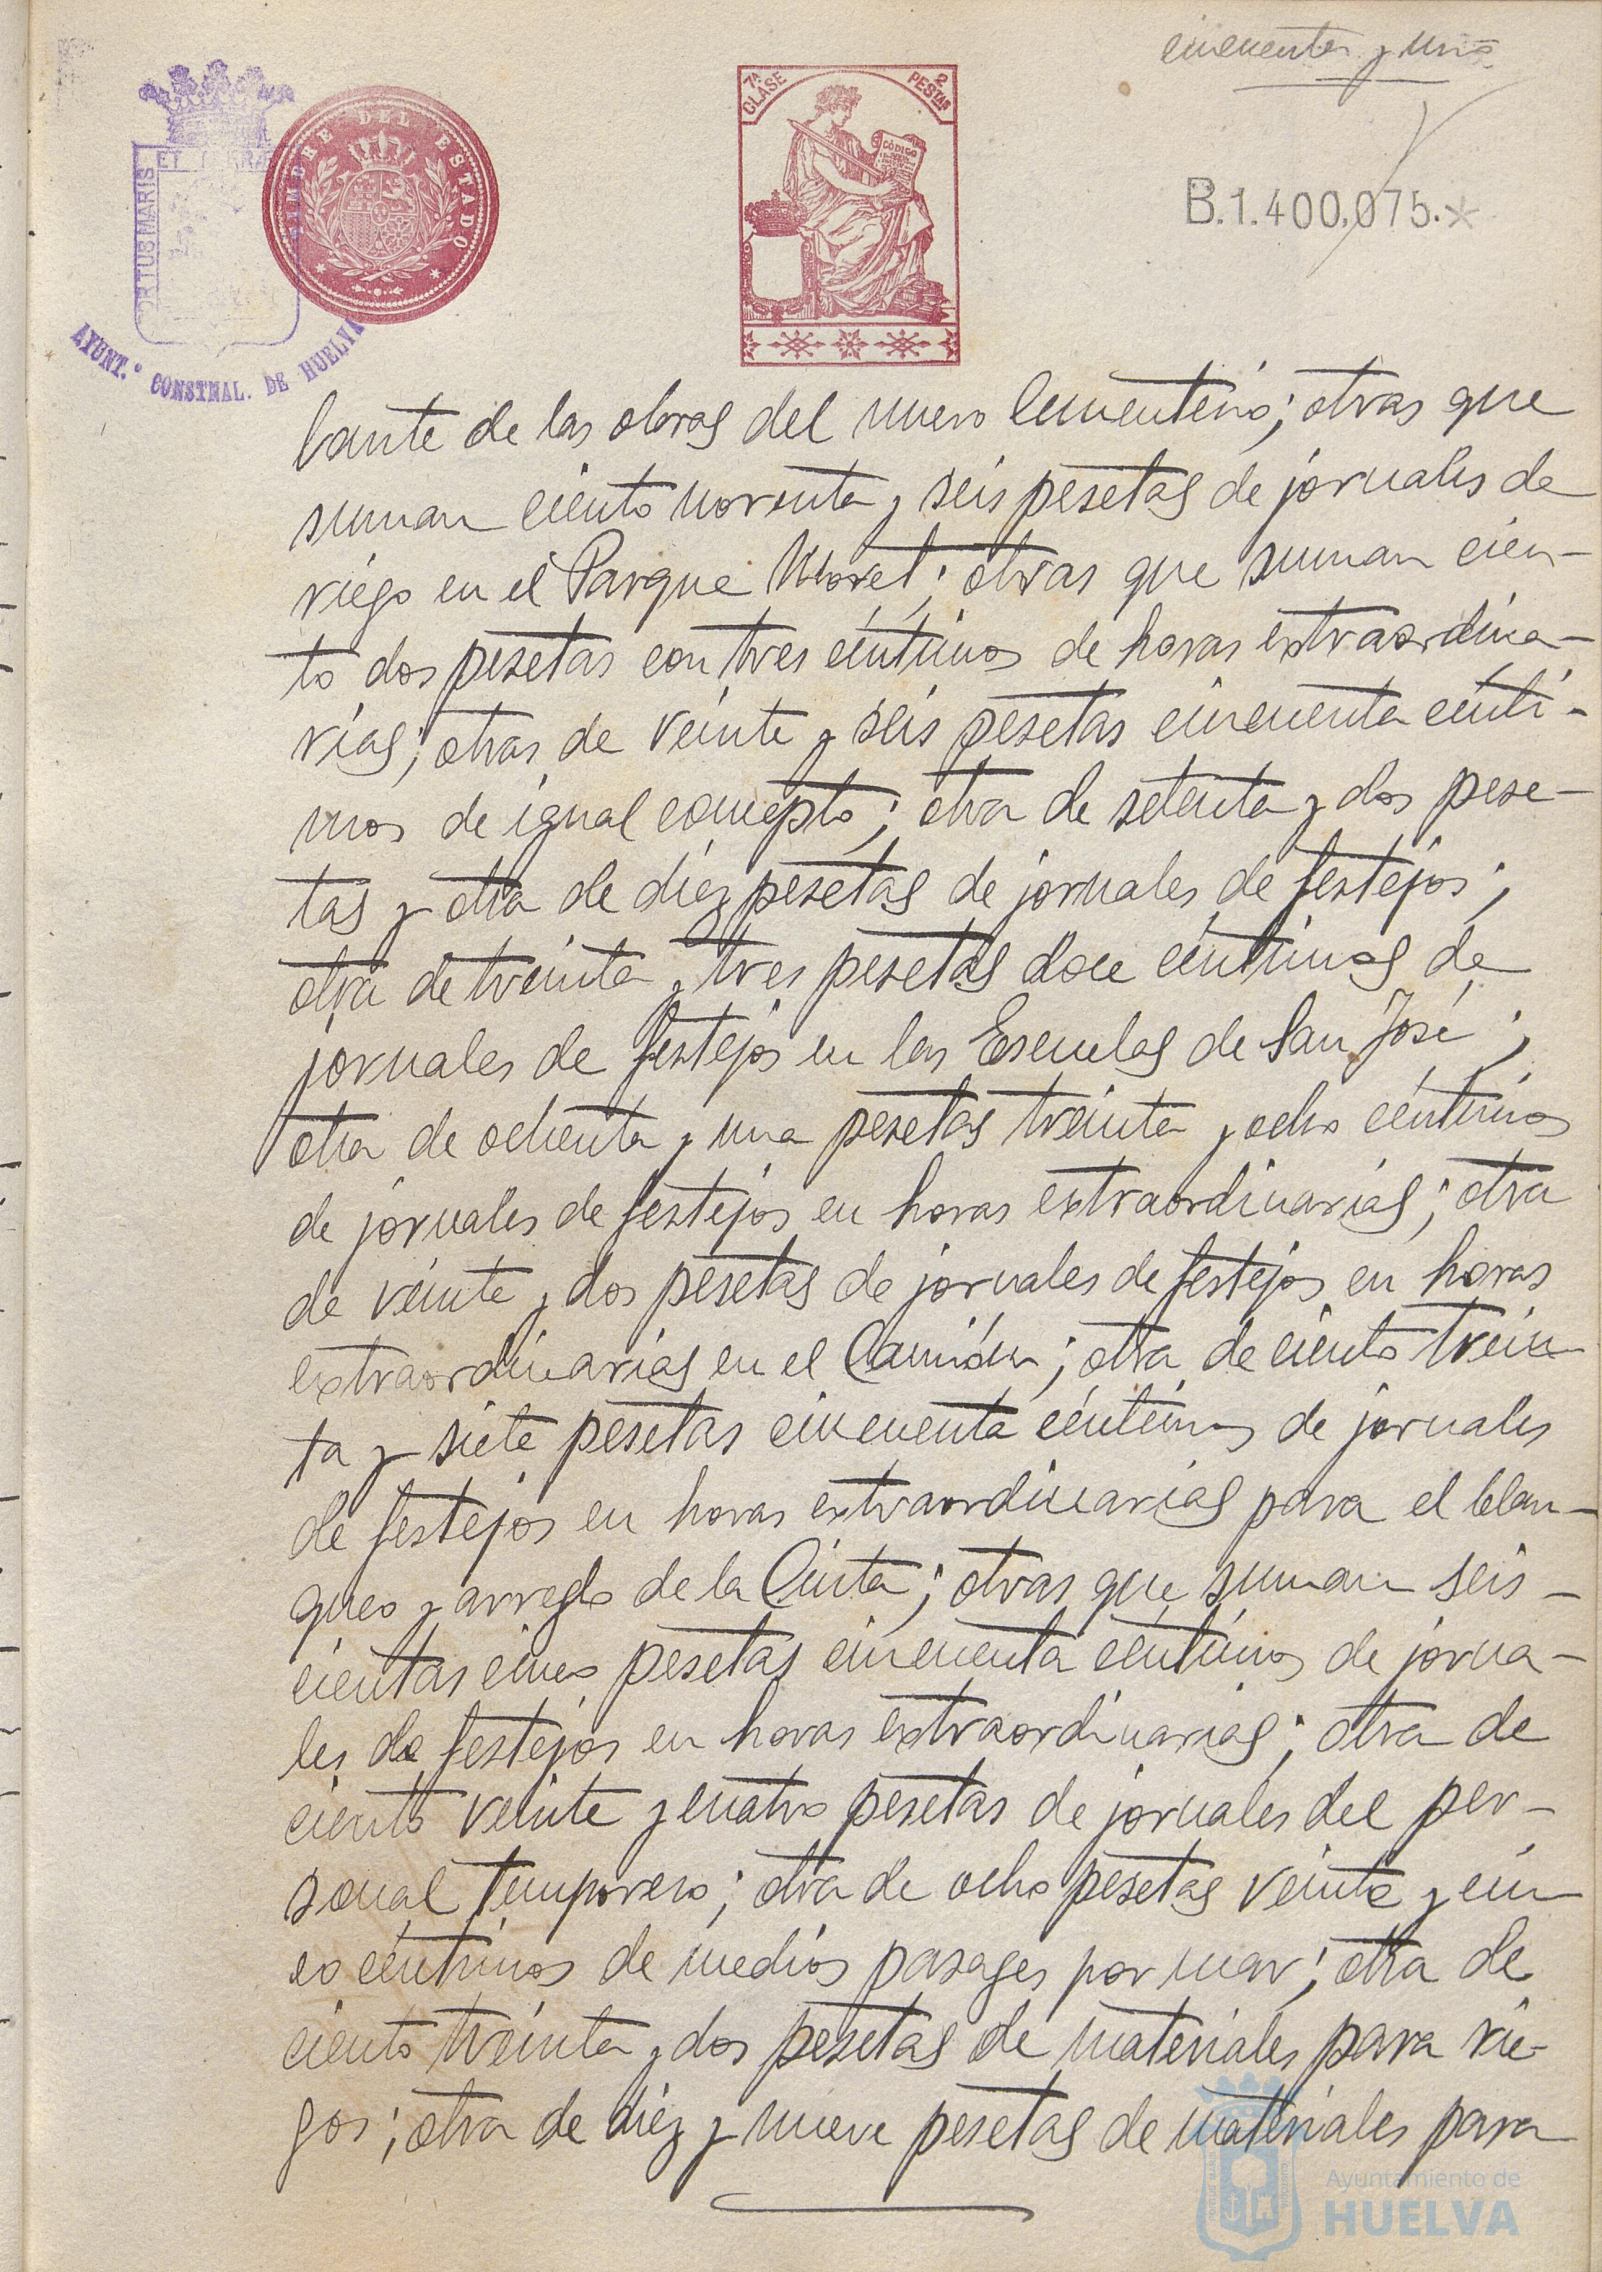 cincuenta y uno
7ª CLASE
2 PESTAS
CÓDIGO
TIMBRE DEL ESTADO
PORTUS MARIS ET TERRÆ
AYUNT.º CONSTNAL. DE HUELVA
B.1.400,075.*
bante de las obras del nuevo Cementerio; otras que
suman ciento noventa y seis pesetas de jornales de
riego en el Parque Moret; otras que suman cien-
to dos pesetas con tres céntimos de horas extraordina-
rias; otras de veinte y seis pesetas cincuenta cénti-
mos de igual concepto; otra de setenta y dos pese-
tas y otra de diez pesetas de jornales de festejos;
otra de treinta y tres pesetas doce céntimos de
jornales de festejos en las Escuelas de San José;
otra de ochenta y una pesetas treinta y ocho céntimos
de jornales de festejos en horas extraordinarias; otra
de veinte y dos pesetas de jornales de festejos en horas
extraordinarias en el Camión; otra de ciento trein
ta y siete pesetas cincuenta céntimos de jornales
de festejos en horas extraordinarias para el blan-
queo y arreglo de la Cinta; otras que suman seis-
cientas cinco pesetas cincuenta céntimos de jorna-
les de festejos en horas extraordinarias; otra de
ciento veinte y cuatro pesetas de jornales del per-
sonal temporero; otra de ocho pesetas veinte y cin
co céntimos de medios pasages por mar; otra de
ciento treinta y dos pesetas de materiales para rie-
gos; otra de diez y nueve pesetas de materiales para
Ayuntamiento de
HUELVA